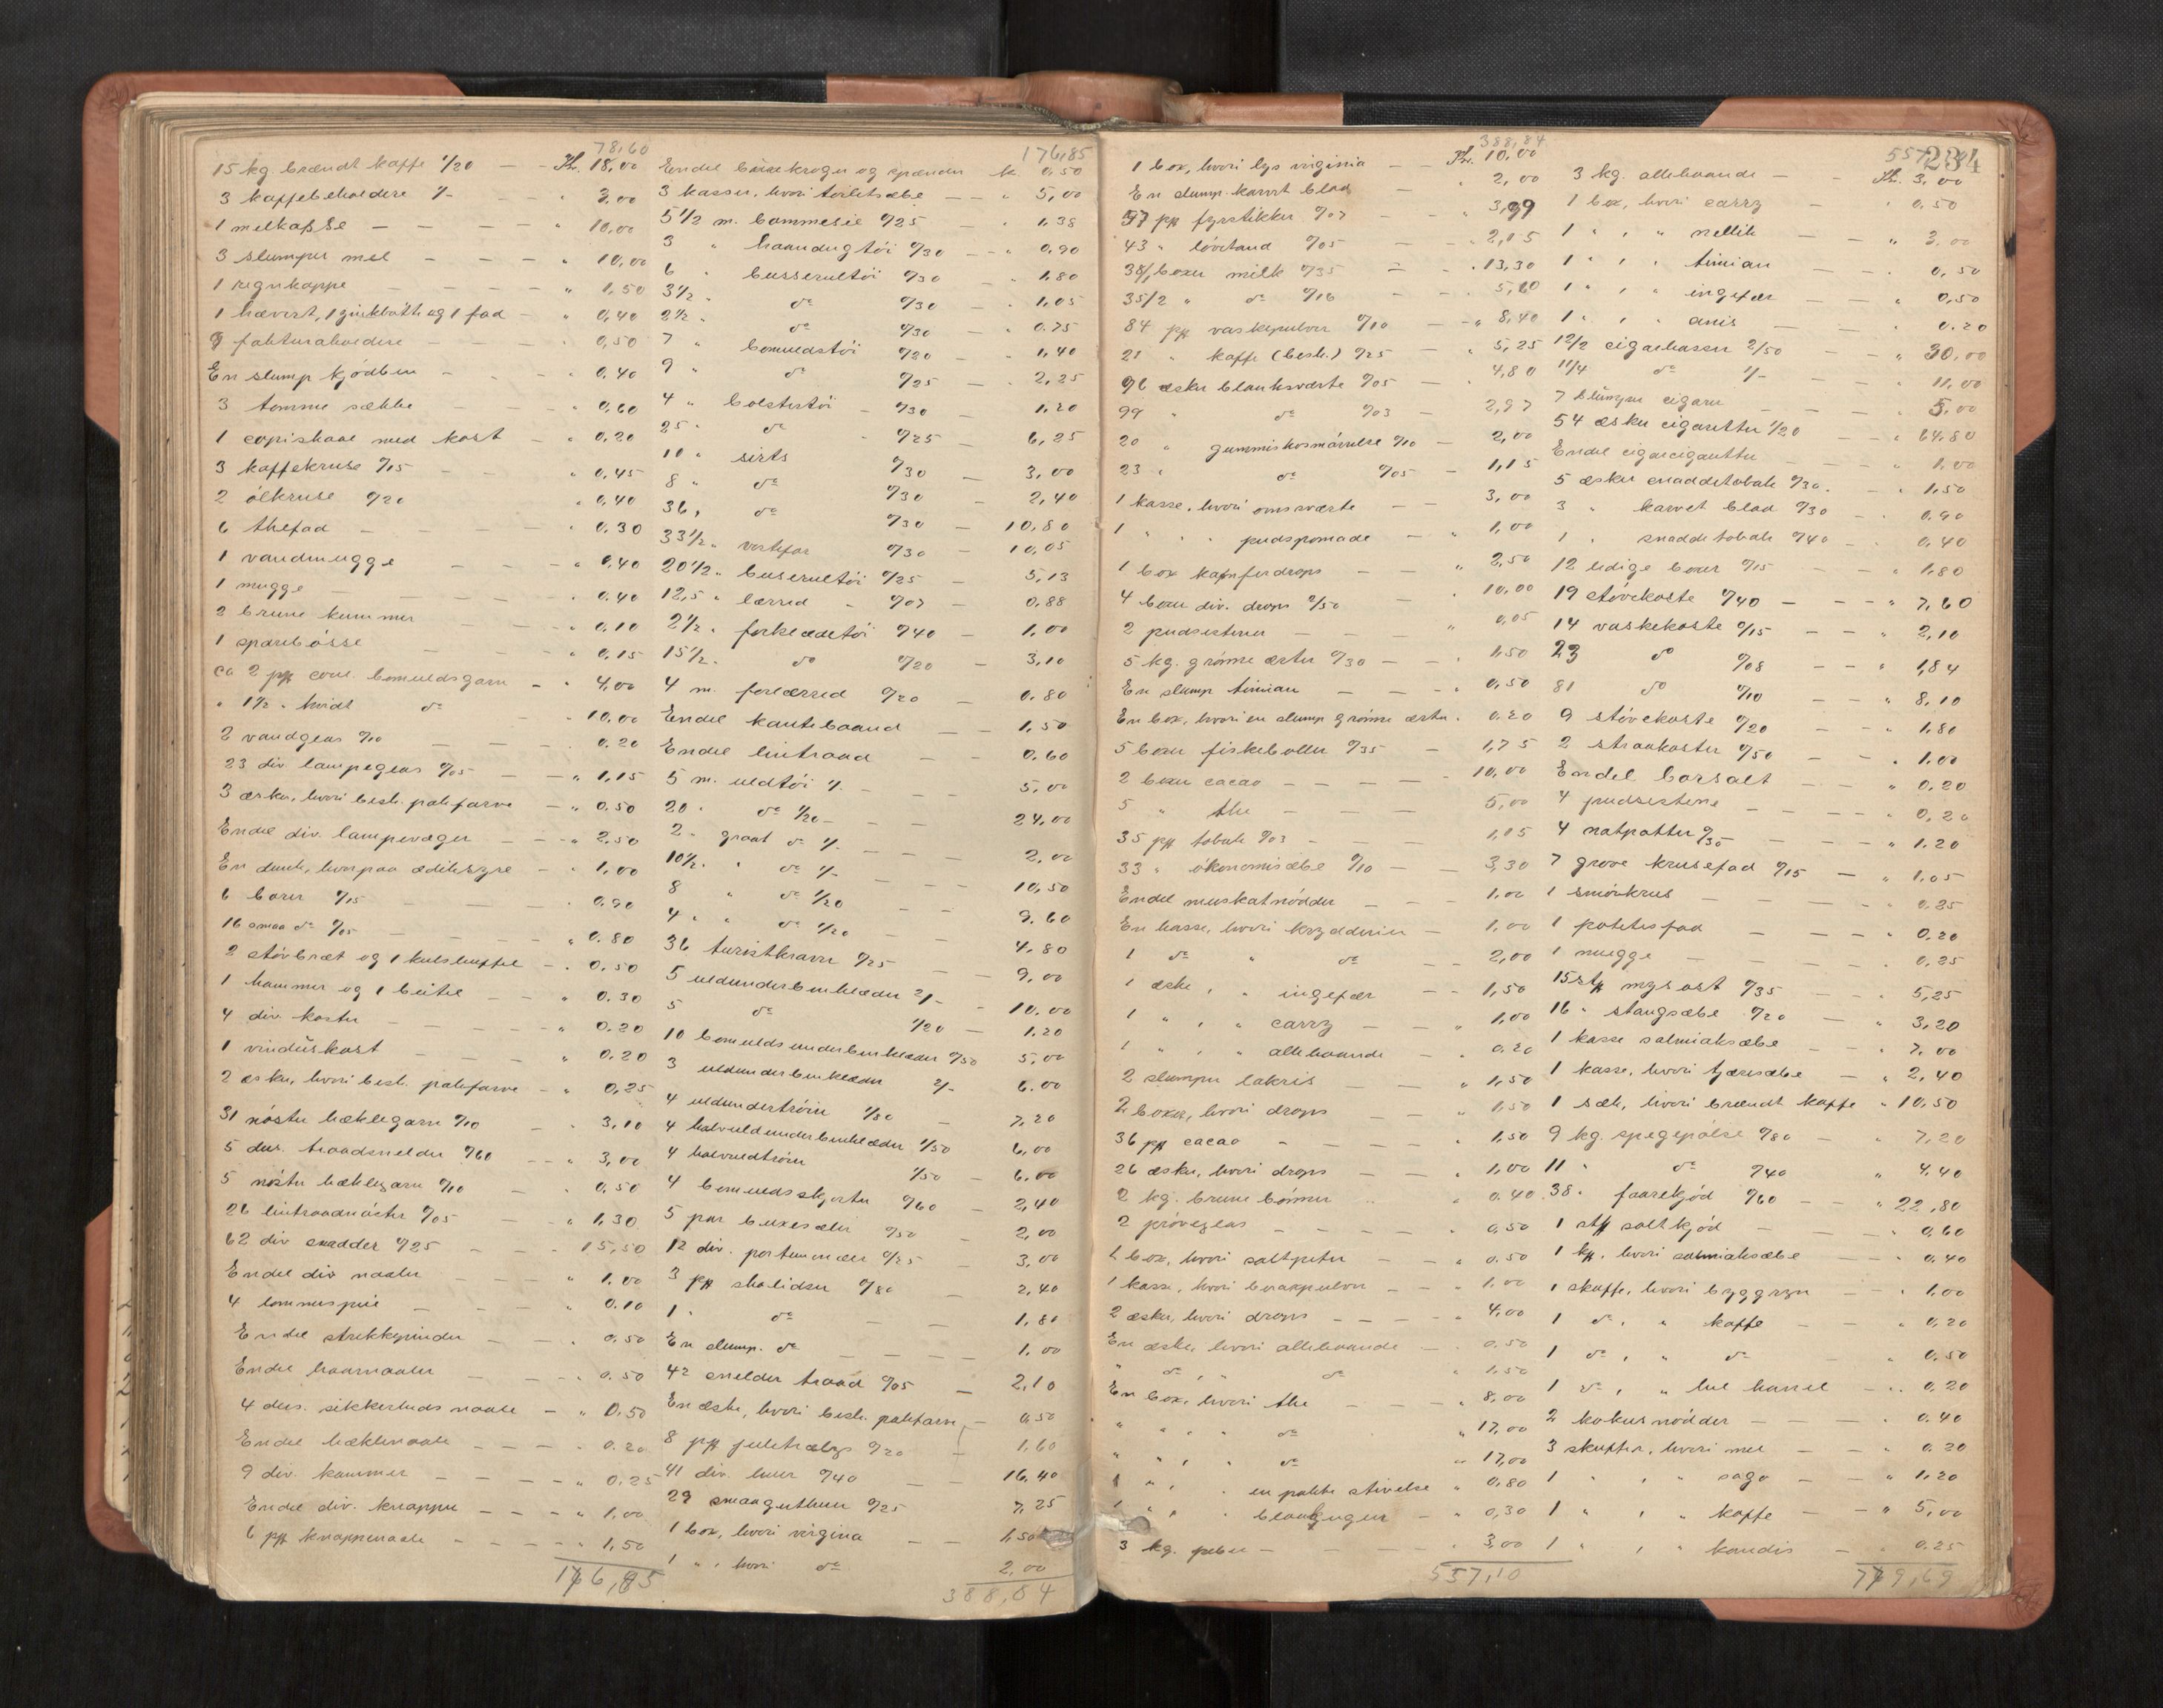 78,60
15 kg. brændt kaffe 1/20 — Kr. 18,00
3 kaffebeholdere 1/- " 3,00
1 melkasse — " 10,00
3 slumper mel — " 10,00
1 regnkappe — " 1,50
1 hævert, 1 zinkbøtte og 1 fad — " 0,40
9 fakturaholdere — " 0,50
En slump kjødben — " 0,40
3 tomme sække — " 0,60
1 copiskaal med kost — " 0,20
3 kaffekruse 0/15 — " 0,45
2 ølkruse 0/20 " 0,40
6 thefad — " 0,30
1 vandmugge — " 0,40
1 mugge — " 0.40
2 brune kummer " 0,10
1 sparebøsse " 0,15
ca 2 pk coul. bomuldsgarn — " 4,00
" 1 1/2 " hvidt do " 10,00
2 vandglas 0/10 — " 0.20
23 div lampeglas 0/05 — " 1,15
3 æsker, hvori besk. pakfarve — " 0.50
Endel div. lampevæger — " 2,50
En dunk, hvorpaa eddiksyre — " 1,00
6 boxer 0/15 — " 0.90
16 smaa do 0/05 " 0.80
2 støvbræt og 1 kulskuffel — " 0,50
1 hammer og 1 beitel — " 0.30
4 div. koster — " 0.20
1 vinduskost — " 0.20
2 æsker, hvori besk. pakfarve — " 0,25
31 nøster hæklegarn 0/10 — " 3,10
5 dus. traadsneller 0/60 — " 3,00
5 nøster hæklegarn 0/10 — " 0,50
26 lintraadnøster 0/05 — " 1,30
62 div snadder 0/25 — " 15,50
Endel div naaler — " 1,00
4 lommespeil — " 0.10
Endel strikkepinder — " 0,50
Endel haarnaaler — " 0.50
4 dus. sikkerheds naale — " 0.50
Endel hæklenaale — " 0.20
9 div. kammer — " 0.25
Endel div. knapper — " 1,00
6 pk knappenaale — " 1,50
176,85
176,85
Endel buxekroger og spænder k 0,50
3 kasser, hvori toiletsæbe — " 5,00
5 1/2 m. bommesie 0/25 " 1,38
3 " haandugtøi 0/30 — " 0,90
6 " busserultøi 0/30 1,80
3 1/2 " do 0/30 " 1,05
2 1/2 " do 0/30 " 0.75
7 " bomuldstøi 0/20 — " 1,40
9 " do 0/25 — " 2,25
4 " bolstertøi 0/30 — 1,20
25 " do 0/25 — 6,25
10 " sirts 0/30 3,00
8 " do 0/30 — 2,40
36 " do 0/30 — 10,80
33 1/2 " vertefor 0/30 — 10,05
20 1/2 " buserultøi 0/25 — 5,13
12,5 " lærred 0/07 — 0,88
2 1/2 " forklædetøi 0/40 — 1,00
15 1/2 " do 0/20 — 3,10
4 m. forlærred 0/20 — 0.80
Endel kantebaand — 1,50
Endel lintraad — 0,60
5 m. uldtøi 1/- — 5,00
20 " do 1/20 — 24,00
2 " graat do 1/- — 2,00
10 1/2 " " do 1/- — 10,50
8 " do 1/20 — 9.60
4 " " do 1/20 — 4.80
36 turistkraver 0/25 — 9,00
5 uldunderbenklæder 2/- — 10,00
5 do 1/20 — 1,20
10 bomulds underbenklæder 0/50 5,00
3 uldunderbenklæder 2/- 6.00
4 uldundertrøier 1/80 — 7,20
4 halvuldunderbenklæder 1/50 6,00
4 halvuldtrøier 1/50 — 6,00
4 bomuldsskjorter 0/60 — 2,40
5 par buxesæler 0/50 — 2,00
12 div. portemonæer 0/25 — 3,00
3 pk skolidser 0/80 — 2,40
1 " do — 1.80
En slump. do — 1.00
42 sneller traad 0/05 — 2,10
En æske, hvori besk. pakfarve, — 0,50
8 pk juletrælys 0/20 — 1,60
41 div. luer 0/40 — 16,40
29 smaagutluer 0/25 7,25
1 box, hvori virgina — 1,50
1 " " hvori do 2,00
388,84
388,84
1 box, hvori lys virginia — Kr. 10,00
En slump. karvet blad — " 2,00
57 pk fyrstikker 0/07 — " 3,99
43 " løvetand 0/05 — " 2,15
38/1 boxer milk 0/35 — " 13,30
35/2 " do 0/16 — " 5,60
84 pk vaskepulver 0/10 — " 8,40
21 " kaffe (besk.) 0/25 " 5,25
96 æsker blanksværte 0/05 — 4,80
99 " do 0/03 — 2,97
20 " gummiskosmørelse 0/10 — 2,00
23 " do 0/05 — 1,15
1 kasse, hvori ovnsværte — 3,00
1 " " " pudspomade — " 1,00
1 box kamferdrops — " 2,50
4 boxer div. drops 2/50 " 10,00
2 pudsestener — " 0,05
5 kg. grønne ærter 0/30 — " 1,50
En slump timian — " 0,50
En box, hvori en slump grønne ærter " 0.20
5 boxer fiskeboller 0/35 — 1,75
2 boxer cacao — 10,00
5 " the — 5,00
35 pk tobak 0/03 — 1,05
33 " økonomisæbe 0/10 — 3,30
Endel muskatnødder — 1,00
En kasse, hvori krydderier — 1,00
1 do " do 2,00
1 æske, " ingefær — 1,50
1 " , " carry — " 1,00
1 " , " allehaande — " 0.20
2 slumper lakris — " 1,50
2 boxer, hvori drops — " 1,50
36 pk cacao — " 1,50
26 æsker, hvori drops — " 1,00
2 kg. brune bønner " 0.40
2 prøveglas — " 0,50
1 box, hvori saltpeter — " 0.50
1 kasse, hvori boraxpulver — " 1,00
2 æsker, hvori drops — 4,00
En æske, hvori allehaande — 0,50
" do , " do " 1,50
En box, hvori the — " 8,00
" " , " do " 17,00
" " , " do " 17,00
1 " , " en pakke stivelse " 0,80
1 " " " blankugler — " 0,30
3 kg. peber — " 3,00
557,10
557,10
234
3 kg. allehaande — Kr. 3,00
1 box, hvori carry — " 0,50
1 " , " nellik — " 3,00
1 " , " timian — " 0,50
1 " , " ingefær — " 0,50
1 " , " anis — " 0.20
12/2 cigarkasser 2/50 — " 30,00
11/4 do 1/- — " 11,00
7 slumper cigarer — " 5,00
54 æsker cigaretter 1/20 — " 64.80
Endel cigarcigaretter — " 1,00
5 æsker snaddetobak 0/30. — " 1,50
3 " karvet blad 0/30 — " 0,90
1 " snaddetobak 0/40 — " 0,40
12 ledige boxer 0/15 — " 1,80
19 støvekoste 0/40 — " 7,60
14 vaskekoste 0/15 — " 2,10
23 do 0/08 — " 1,84
81 do 0/10 — " 8,10
9 støvekoste 0/20 — " 1,80
2 straakoster 0/50 — " 1,00
Endel borsalt — " 0,20
4 pudsestene — " 0,20
4 natpotter 0/30 — " 1.20
7 grove krusefad 0/15 — " 1,05
1 smørkrus — 0,25
1 potetesfad — " 0,20
1 mugge — " 0,25
15 stk mysost 0/35 — " 5,25
16 " stangsæbe 0/20 — " 3,20
1 kasse salmiaksæbe — " 7,00
1 kasse, hvori tjæresæbe — " 2,40
1 sæk, hvori brændt kaffe " 10,50
9 kg. spegepølse 0/80 — " 7,20
11 " do 0/40 " 4.40
38 " faarekjød 0/60 — " 22,80
1 stk saltkjød — " 0,60
1 kp. hvori salmiaksæbe — " 0,40
1 skuffe, hvori byggryn — " 1,00
1 do , " kaffe — " 0,20
1 do , " do " 0,50
1 do , " hel kanel — " 0.20
2 kokusnødder — " 0.40
3 skuffer, hvori mel — " 0.20
1 " , " sago — " 1,20
1 " , " kaffe — " 5,00
1 " , " kandis — " 0.25
779,69